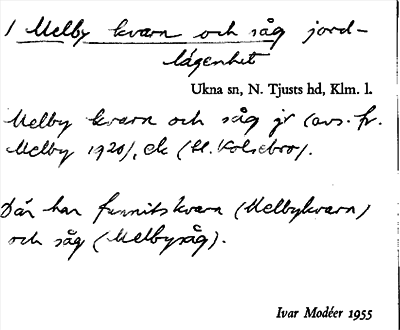 / Melby kvarn och såg jord-
lägenhet
Ukna sn, N. Tjusts hd, Klm. l.
Melby kvarn och såg jr (avs. fr.
Melby 1920), ek (Hl. Kolsebro).
Där har funnits kvarn (Melbykvarn)
och såg (Melbysåg).
Ivar Modéer 1955